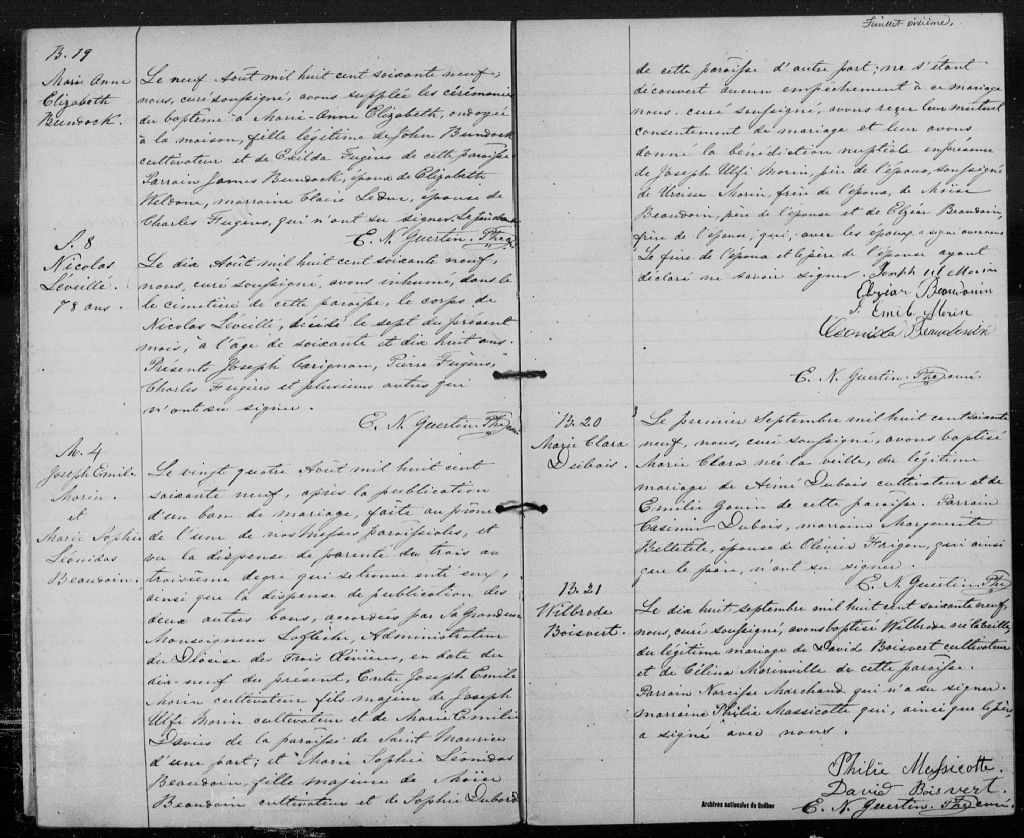 B. 19
Marie Anne
Elizabeth
Bundock.
Le neuf Août mil huit cent soixante neuf,
nous, curé soussigné, avons supplée les cérémonies
du baptême à Marie-Anne Elizabeth, ondoyée
à la maison, fille légitime de John Bundock
cultivateur et de Exilda Fugères de cette paroisse
Parrain James Bundock, époux de Elizabeth
Welbone, marraine Claire Leduc, épouse de
Charles Fugères, qui n'ont su signer.
E. N. Guertin. Ptre
S. 8
Nicolas
Léveillé.
78 ans.
Le dix Août mil huit cent soixante neuf,
nous, curé soussigné, avons inhumé, dans le
le cimetière de cette paroisse, le corps de
Nicolas Léveillé, décédé le sept du présent
mois, à l'âge de soixante et dix huit ans.
Présents Joseph Carignan, Pierre Fugères,
Charles Fugères et plusieurs autres qui
n'ont su signer.
E. N. Guertin. Ptre curé
M. 4
Joseph Emile
Morin.
et
Marie Sophie
Léonidas
Beaudoin.
Le vingt quatre Août mil huit cent
soixante neuf, après la publication
d'un ban de mariage, faite au prône
de l'une de nos Messes paroissiales, et
vu la dispense de parenté du trois au
troisième degré qui se trouve entr'eux,
ainsi que la dispense de publication des
deux autres bans, accordées par Sa Grandeur
Monseigneur Laflèche, Administrateur
du Diocèse des Trois Rivières, en date du
dix-neuf du présent, Entre Joseph Emile
Morin cultivateur fils majeur de Joseph
Ulfi Morin cultivateur et de Marie Emilie
Davies de la paroisse de Saint Maurice
d'une part; et Marie Sophie Léonidas
Beaudoin, fille majeure de Moïse
Beaudoin cultivateur et de Sophie Dubord
Feuillet sixième.
de cette paroisse d'autre part; ne s'étant
découvert aucun empêchement à ce mariage
nous, curé soussigné, avons reçu leur mutuel
consentement de mariage et leur avons
donné la bénédiction nuptiale en présence
de Joseph Ulfi Morin, père de l'époux, soussigné
de Morin, frère de l'époux, de Moïse
Beaudoin, père de l'épouse et de Elzéar Beaudoin,
frère de l'épouse, qui, avec les époux, a signé avec nous
Le frère de l'époux et le père de l'épouse ayant
déclaré ne savoir signer. Joseph Ul Morin
Elzéar Beaudouin
J. Emil Morin
Léonida Beaudouin
E. N. Guertin. Ptre curé.
B. 20
Marie Clara
Dubois.
Le premier Septembre mil huit cent soixante
neuf, nous, curé soussigné, avons baptisé
Marie Clara née la veille, du légitime
mariage de Aimé Dubois cultivateur et de
Emilie Gouin de cette paroisse. Parrain
Casimir Dubois, marraine Marguerite
Belletête, épouse de Olivier Frigon, qui ainsi
que le père, n'ont su signer.
E. N. Guertin. Ptre
B. 21
Wilbrode
Boisvert.
Le dix huit septembre mil huit cent soixante neuf,
nous, curé soussigné, avons baptisé Wilbrode né la veille,
du légitime mariage de David Boisvert cultivateur
et de Célina Morinville de cette paroisse.
Parrain Narcisse Marchand qui n'a su signer.
marraine Philie Massicotte qui, ainsi que le père,
a signé avec nous.
Philie Massicotte.
David Boisvert.
E. N. Guertin. Ptre curé.
Archives nationales du Québec